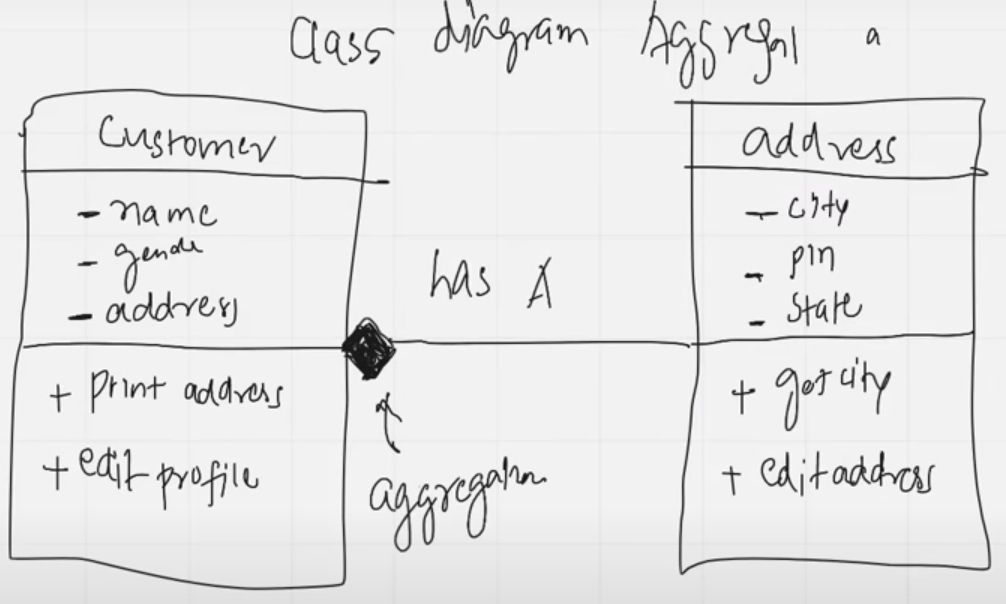 Class diagram Aggregal a
Customer
- name
- gende
- address
+ print address
+ edit profile
has A
aggregation
address
- city
- pin
- state
+ getcity
+ editaddress